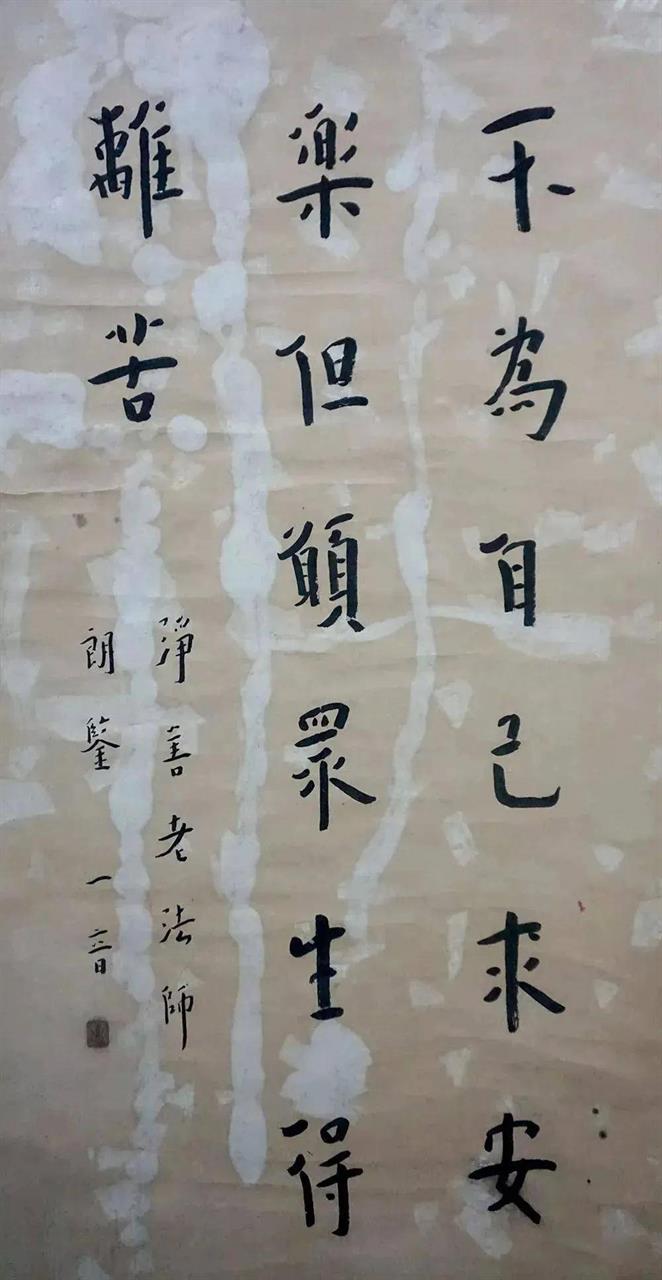 不為自己求安
樂但願眾生得
離苦
淨善老法師
朗鑒 一音